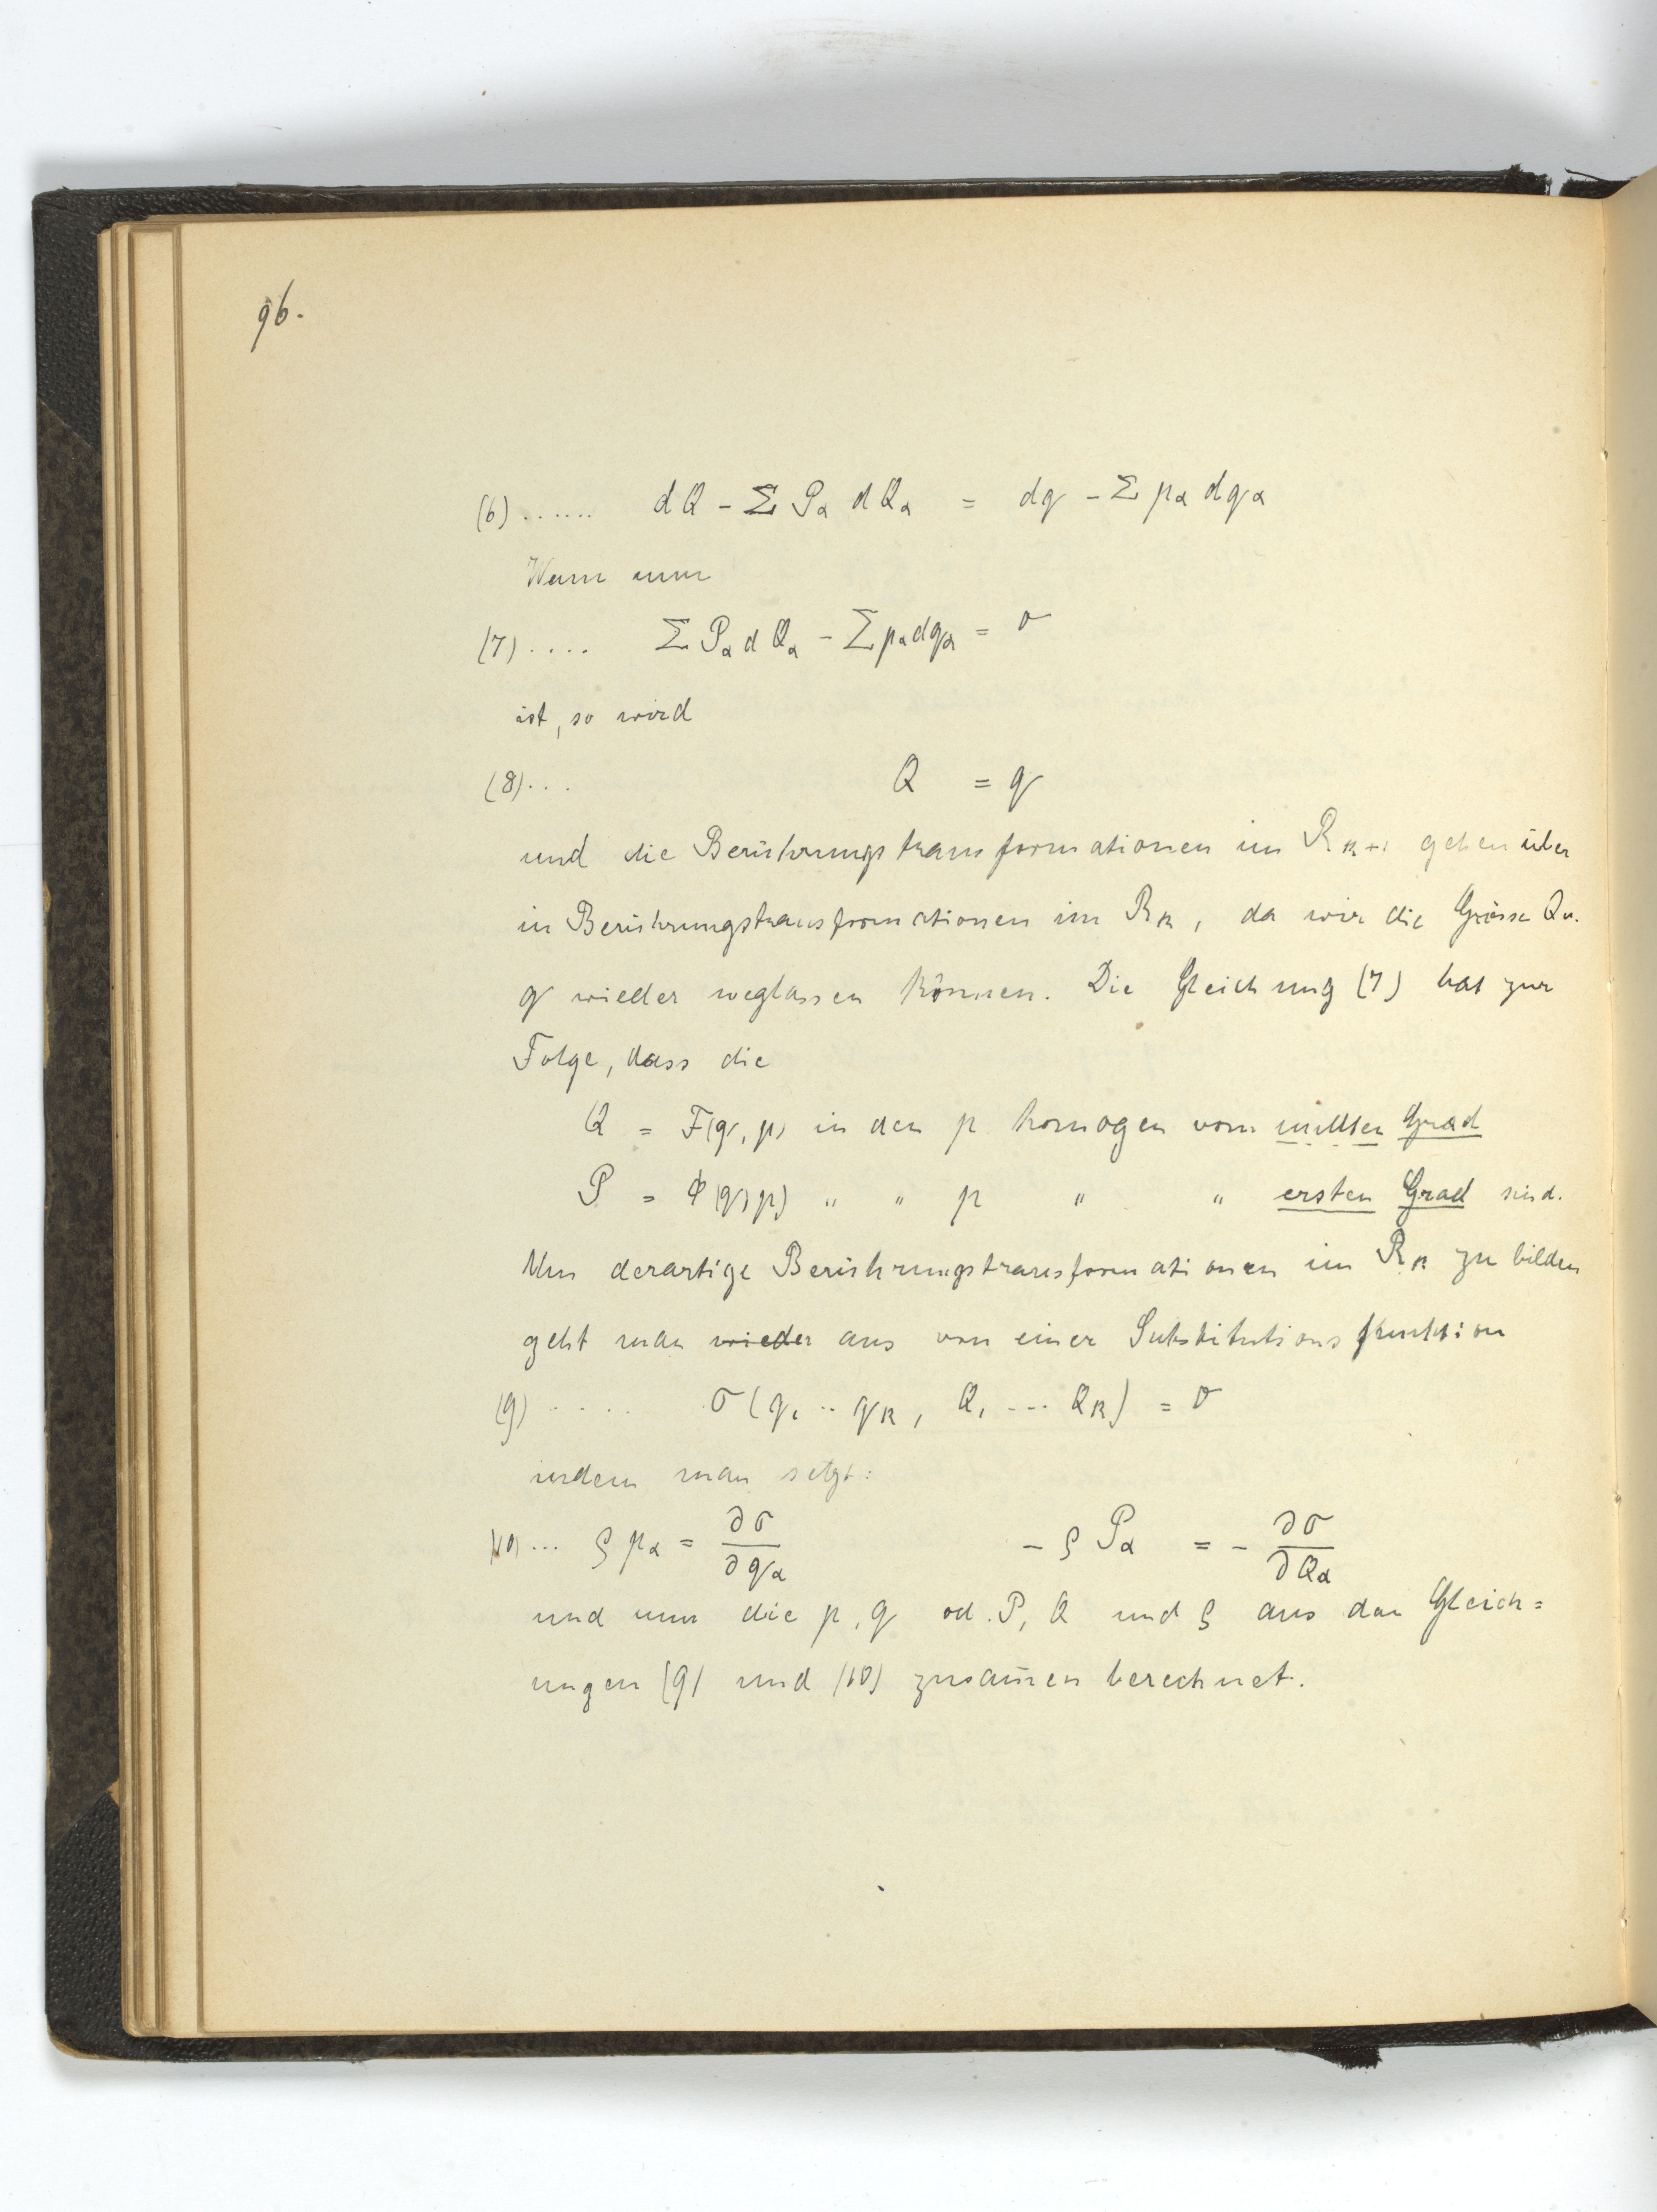 96.
(6) ...... dQ - Σ Pα dQα = dq - Σ pα dqα
Wenn nun
(7) .... Σ Pα dQα - Σ pα dqα = 0
ist, so wird
(8) ... Q = q
und die Berührungstransformationen im Rk+1 gehen über
in Berührungstransformationen im Rk, da wir die Grösse Q u.
q wieder weglassen können. Die Gleichung (7) hat zur
Folge, dass die
Q = F(q, p) in den p homogen vom nullten Grad
P = Φ(q, p) " " p " " ersten Grad sind.
Um derartige Berührungstransformationen im Rk zu bilden
geht man wieder aus von einer Substitutionsfunktion
(9) ..... σ(q1 .. qk, Q1 ... Qk) = 0
indem man setzt:
(10) ... ρ pα = ∂σ/∂qα - ρ Pα = - ∂σ/∂Qα
und nun die p, q od. P, Q und ρ aus den Gleich=
ungen (9) und (10) zusam̄en berechnet.